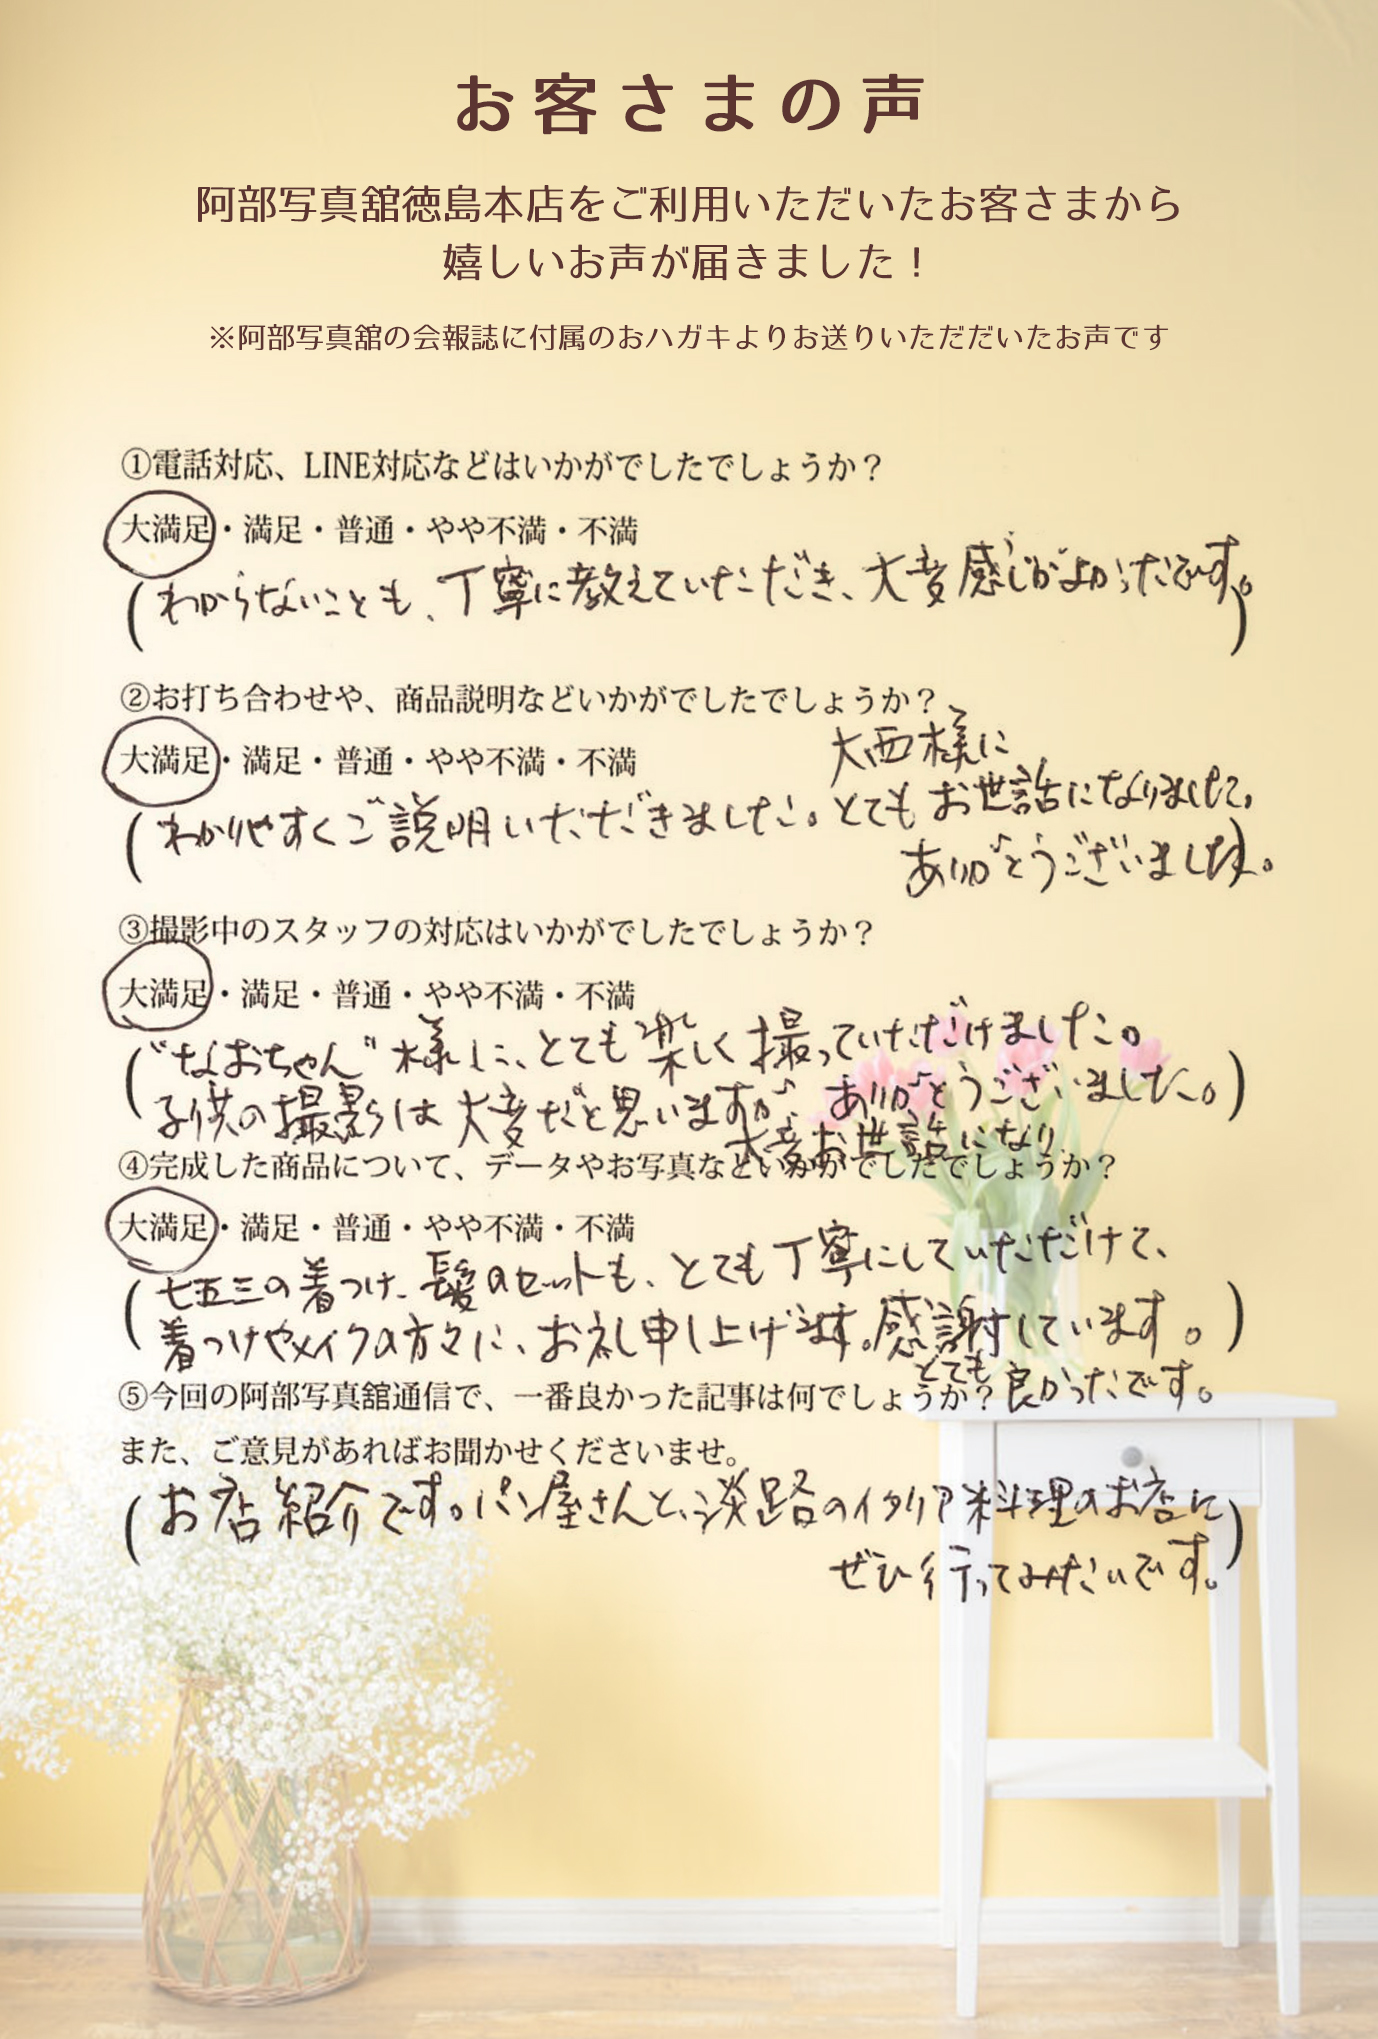 お客さまの声
阿部写真舘徳島本店をご利用いただいたお客さまから
嬉しいお声が届きました！
※阿部写真舘の会報誌に付属のおハガキよりお送りいただだいたお声です
①電話対応、LINE対応などはいかがでしたでしょうか？
大満足・満足・普通・やや不満・不満
(わからないことも、丁寧に教えていただき、大変感じがよかったです。)
②お打ち合わせや、商品説明などいかがでしたでしょうか？
大満足・満足・普通・やや不満・不満
大西様に
(わかりやすくご説明いただきました。とてもお世話になりまして、
ありがとうございました。)
③撮影中のスタッフの対応はいかがでしたでしょうか？
大満足・満足・普通・やや不満・不満
("なおちゃん"様に、とても楽しく撮っていただけました。
子供の撮影は大変だと思いますが、ありがとうございました。)
大変お世話になり
④完成した商品について、データやお写真などいかがでしたでしょうか？
大満足・満足・普通・やや不満・不満
(七五三の着つけ、髪のセットも、とても丁寧にしていただけて、
着つけやメイクの方々に、お礼申し上げます。感謝しています。)
とても良かったです。
⑤今回の阿部写真舘通信で、一番良かった記事は何でしょうか？
また、ご意見があればお聞かせくださいませ。
(お店紹介です。パン屋さんと、淡路のイタリア料理のお店に
ぜひ行ってみたいです。)